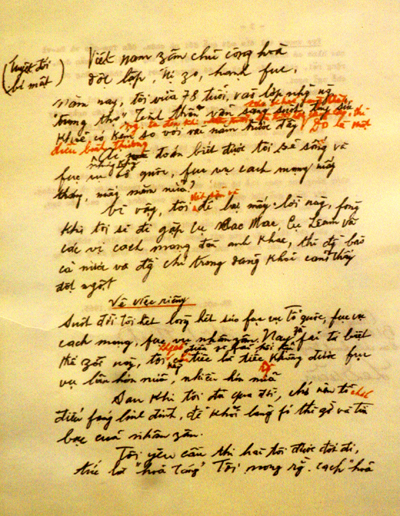 (Tuyệt đối
bí mật)
Việt nam zân chủ cộng hoà
độc lập, tự zo, hạnh fúc.
Năm nay, tôi vừa 78 tuổi, vào lớp những ng
"trung thọ" Tinh thần vẫn sáng suốt, tuy sức
Khoẻ có kém so với vài năm trước đây,
điều bình thường
toán biết được tôi sẽ sống và
fục vụ tổ quốc, fục vụ cách mạng mấy
tháng, mấy năm nữa?
Vì vậy, tôi để lại mấy lời này, fòng
Khi tôi sẽ đi gặp Cụ Các Mác, Cụ Lênin và
các vị cách mạng đàn anh khác, thì đ bào
cả nước và đ chí trong đảng khỏi cảm thấy
đột ngột
Về việc riêng
Suốt đời tôi hết lòng hết sức fục vụ Tổ quốc, fục vụ
cách mạng, fục vụ nhân zân. Nay zù fải từ biệt
thế zới này, tôi tiếc là tiếc không được fục
vụ lâu hơn nữa, nhiều hơn nữa
Sau khi tôi đã qua đời, chớ nên tổ chức
điếu fúng linh đình, để khỏi lãng fí thì zờ và tiền
bạc của nhân zân.
Tôi yêu cầu thi hài tôi được đốt đi,
tức là "hoả táng" Tôi mong rằng cách "hoả